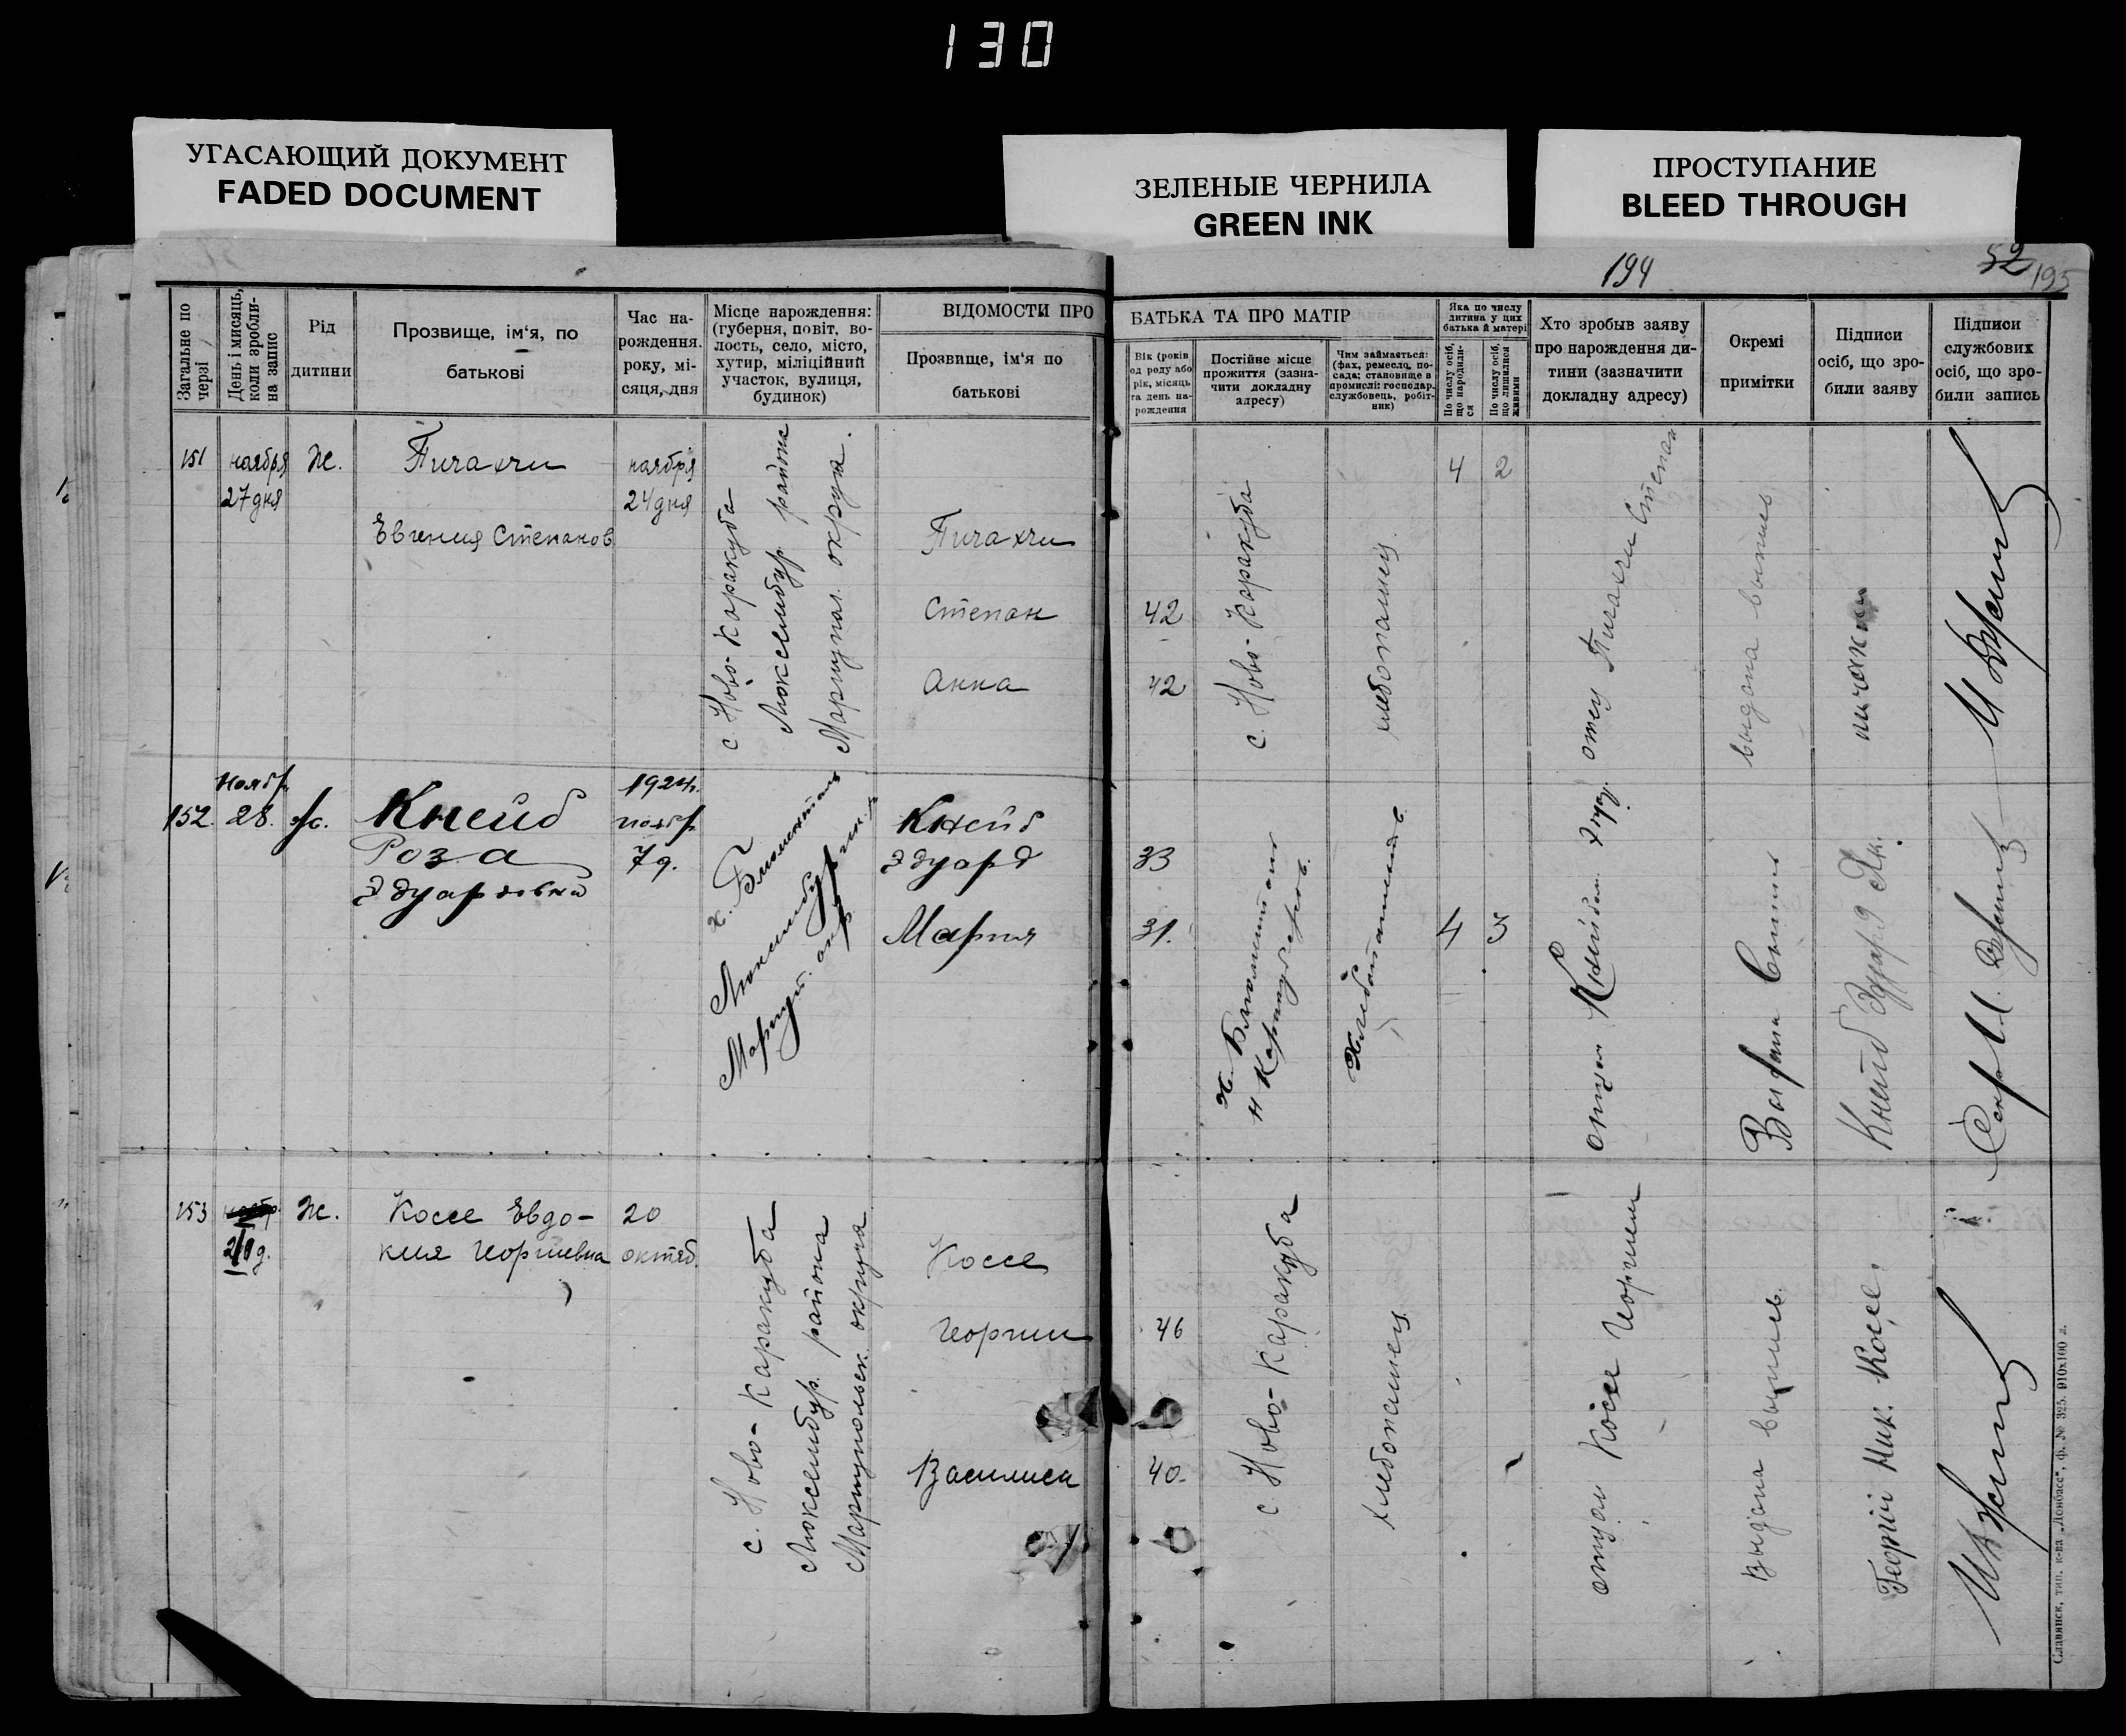 130
УГАСАЮЩИЙ ДОКУМЕНТ
FADED DOCUMENT
ЗЕЛЕНЫЕ ЧЕРНИЛА
GREEN INK
ПРОСТУПАНИЕ
BLEED THROUGH
194
52
195
Загальне по
черзі
День і мисяць,
коли зробли-
на запис
Рід
дитини
Прозвище, ім‘я, по
батькові
Час на-
рождення.
року, мі-
сяця, дня
Місце нарождення:
(губерня, повіт, во-
лость, село, місто,
хутир, міліційний
участок, вулиця,
будинок)
ВІДОМОСТИ ПРО
Прозвище, ім‘я по
батькові
БАТЬКА ТА ПРО МАТІР
Вік (років
од роду або
рік, місяць
та день на-
рождення
Постійне місце
прожиття (зазна-
чити докладну
адресу)
Чим займається:
(фах, ремесло, по-
сада; становище в
промислі: господар,
службовець, робіт-
ник)
Яка по числу
дитина у цих
батька й матері
По числу осіб,
що народили-
ся
По числу осіб,
що лишилися
живими
Хто зробыв заяву
про нарождення ди-
тини (зазначити
докладну адресу)
Окремі
примітки
Підписи
осіб, що зро-
били заяву
Підписи
службових
осіб, що зро-
били запись
151
ноября
27 дня
Ж.
Пичахчи
Евгения Степанов
ноября
24 дня
с. Ново-Каракуба
Люксембур. района
Мариупол. округа.
Пичахчи
Степан
Анна
42
42
с. Ново-Каракуба
хлебопашец
4
2
отец Пичахчи Степан
выдана выпись
152.
Ноябр.
28.
ж.
Кнейб
Роза
Эдуардовна
1924г.
ноябр
7 д.
Мариуп. окр.
Кнейб
Эдуард
Мария
33
31.
4
3
отцом Кнейбом
Выдана
Кнейб Эдуард
153
Ж.
Коссе Евдо-
кия Георгиевна
20
октяб.
с. Ново-Каракуба
Люксембур. района
Мариупольск. округа
Коссе
Георгии
Василиса
46
40.
с. Ново-Каракуба
хлебопашец
отцом Коссе Георгием
Выдана выпись.
Георгіи Ник. Коссе.
Славянск, тип. к-ва „Донбасс“, ф. № 325. 910х100 л.